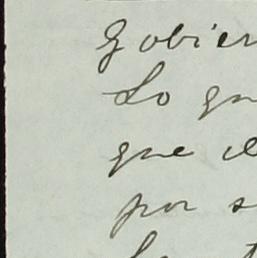 Gobier
Lo qu
que e
por s